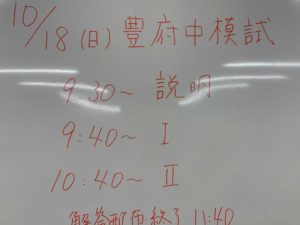 10/18(日) 豊府中模試
9:30〜 説明
9:40〜 I
10:40〜 II
解答配布・終了 11:40